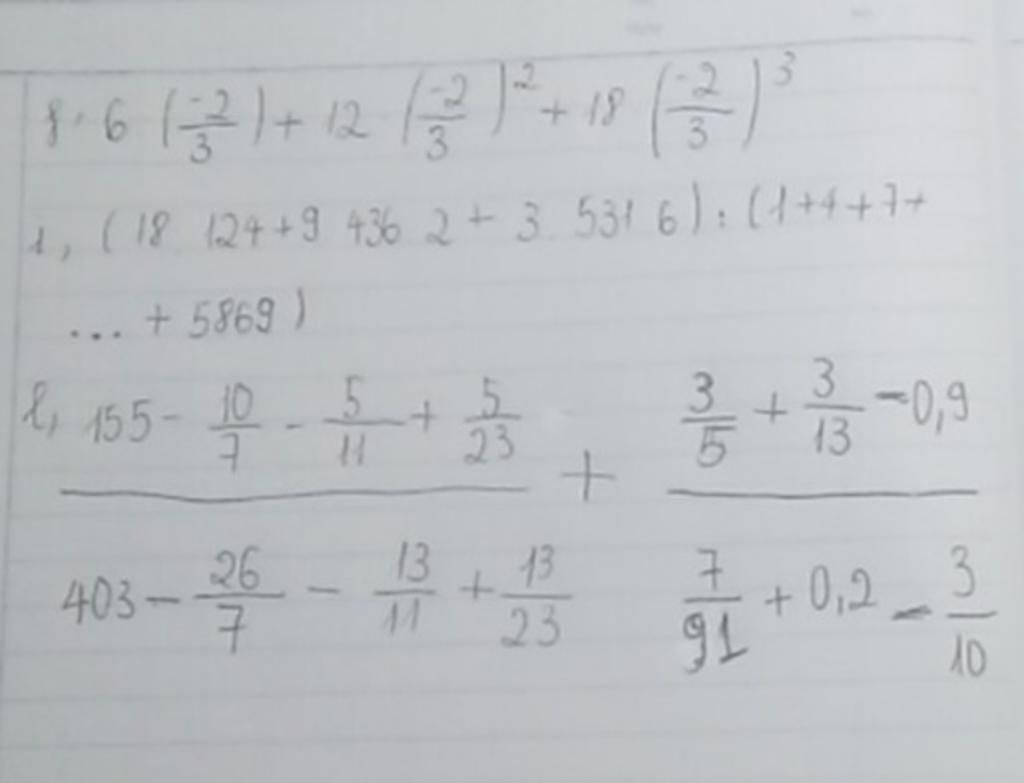 8. 6 (-2/3) + 12 (-2/3)² + 18 (-2/3)³
1, (18 124 + 9 436 2 + 3 531 6) : (1+4+7+
... + 5869)
l, (155 - 10/7 - 5/11 + 5/23)/(403 - 26/7 - 13/11 + 13/23) + (3/5 + 3/13 - 0,9)/(7/91 + 0,2 - 3/10)